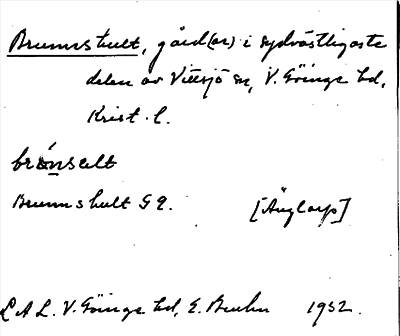 Brumshult, gård(ar) i sydvästligaste
delen av Vittsjö sn, V. Göinge hd,
Krist. l.
brónselt
Brumshult G2.    [Änglarp]
L A L. V. Göinge hd, E. Bruhn    1932.